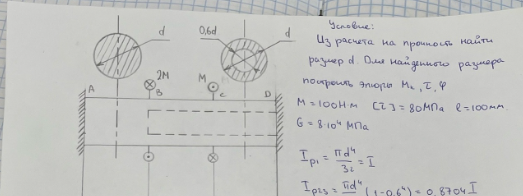 d
0,6d
d
2M
M
A
B
C
D
Условие:
Из расчета на прочность найти
размер d. Для найденного размера
построить эпюры Mк, τ, φ
M=100Н·м [τ]=80МПа ℓ=100мм
G=8·10⁴ МПа
Ip1 = πd⁴/32 = I
Ip2,3 = πd⁴ (1-0,6⁴) = 0,8704 I